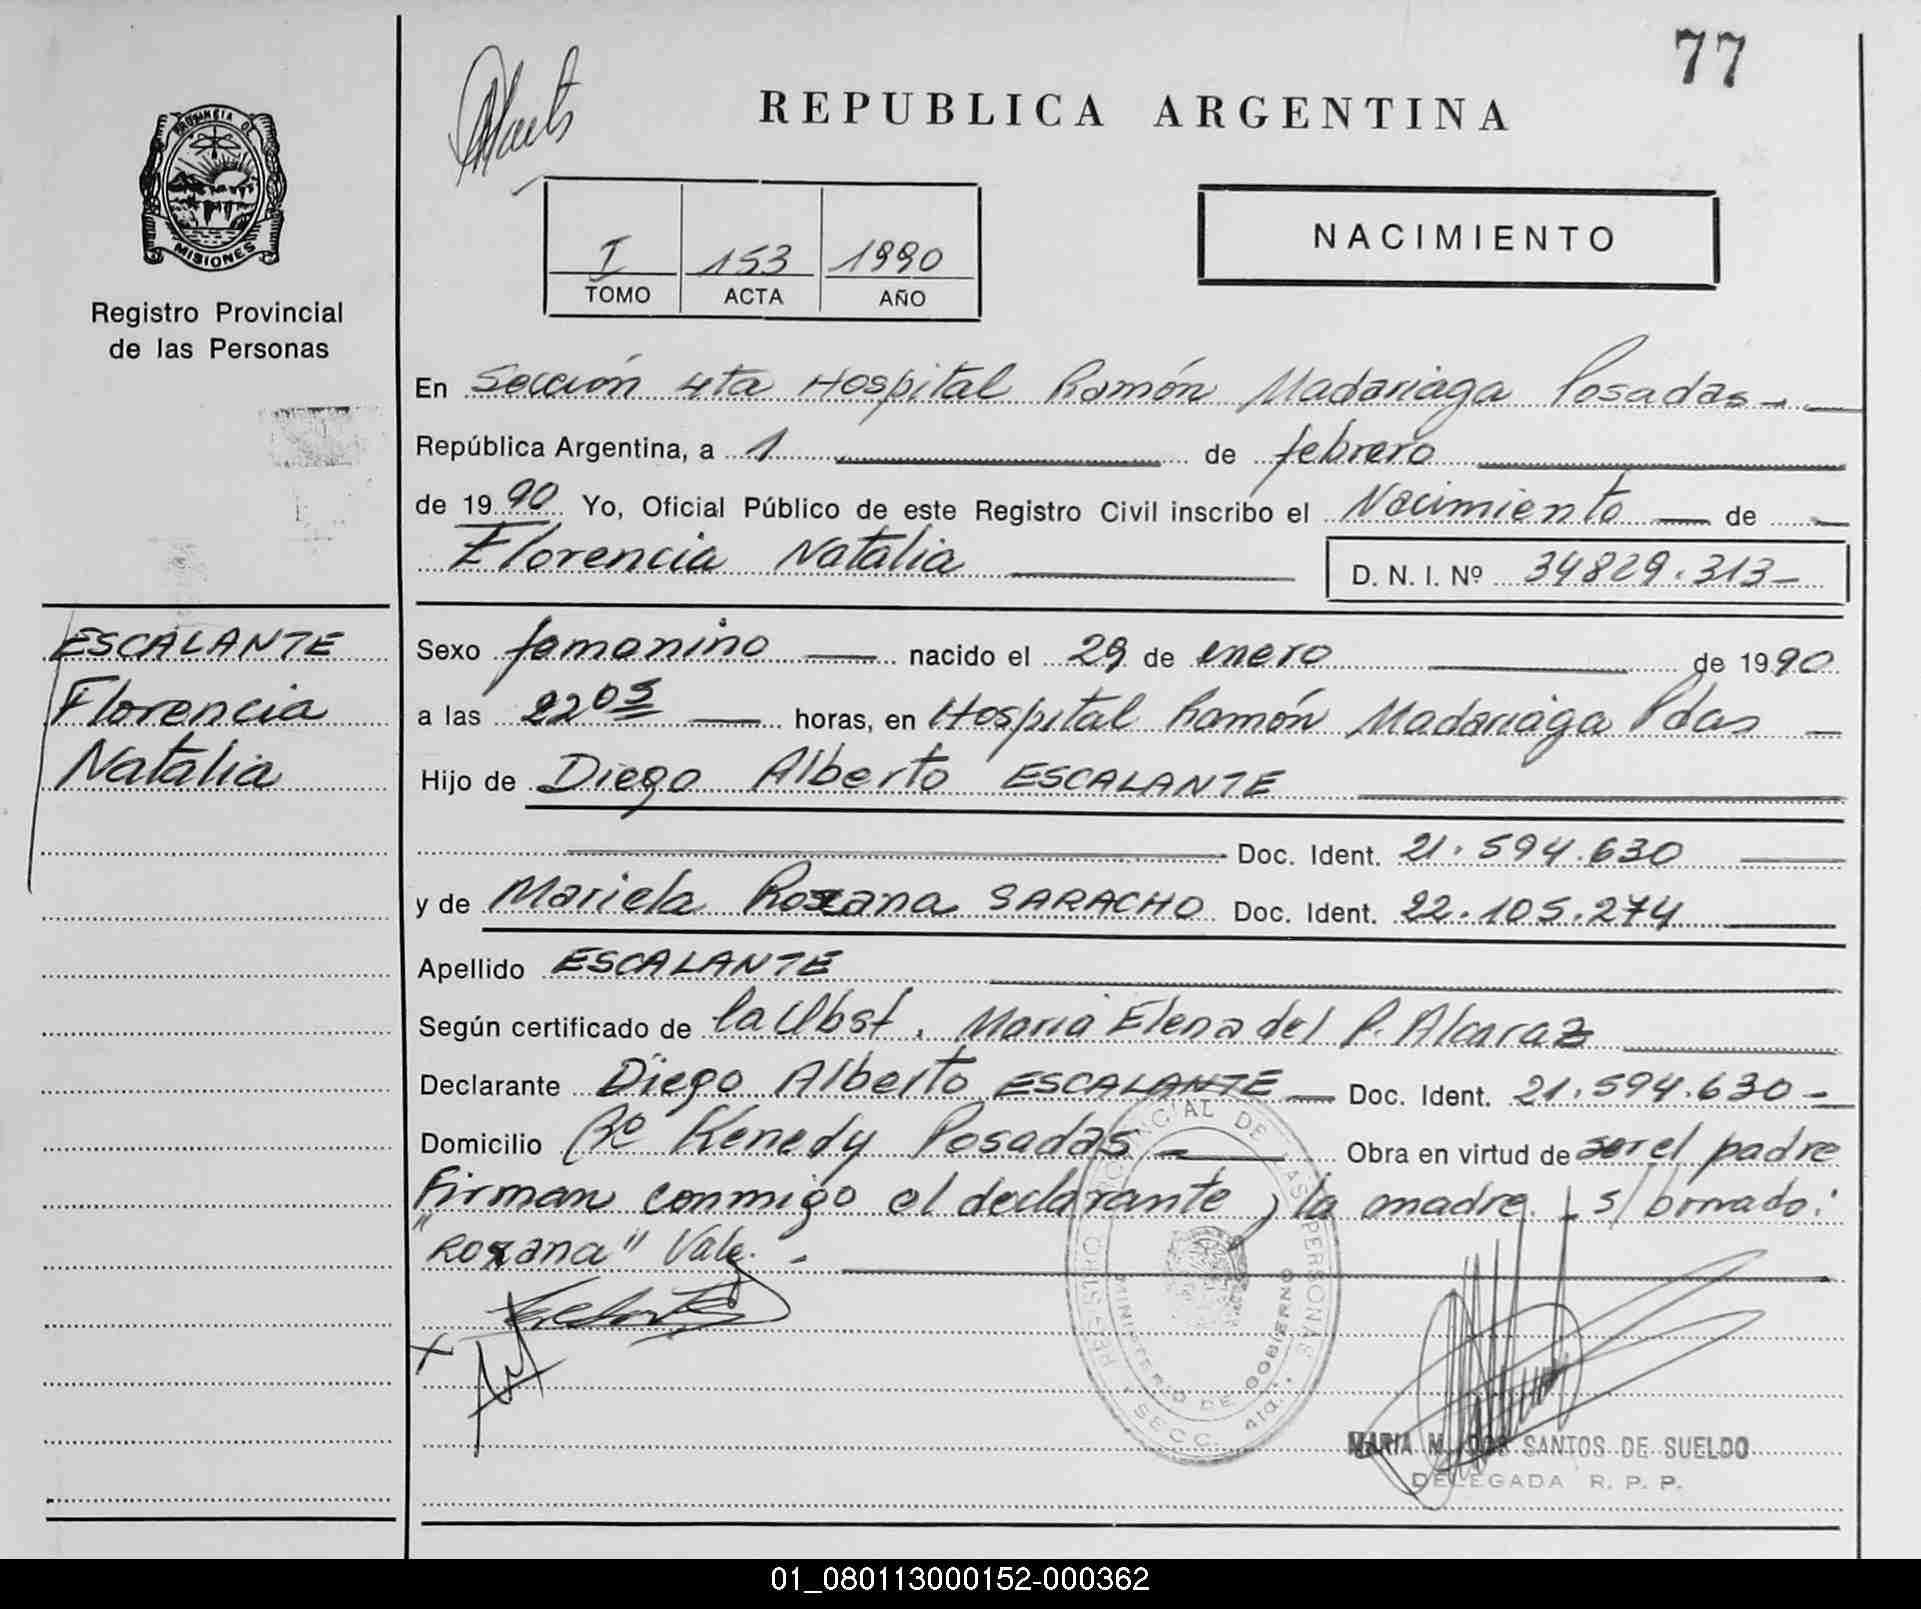 77
REPUBLICA ARGENTINA
PROVINCIA DE
MISIONES
Registro Provincial
de las Personas
I 153 1990
TOMO ACTA AÑO
NACIMIENTO
En Sección 4ta Hospital Ramón Madariaga Posadas
República Argentina, a 1 de febrero
de 1990 Yo, Oficial Público de este Registro Civil inscribo el Nacimiento de
Florencia Natalia D. N. I. Nº 34829.313
ESCALANTE
Florencia
Natalia
Sexo femenino nacido el 29 de enero de 1990
a las 22 05 horas, en Hospital Ramón Madariaga Pdas
Hijo de Diego Alberto ESCALANTE
Doc. Ident. 21.594.630
y de Mariela Roxana SARACHO Doc. Ident. 22.105.274
Apellido ESCALANTE
Según certificado de la Obst. Maria Elena del P. Alcaraz
Declarante Diego Alberto ESCALANTE Doc. Ident. 21.594.630
Domicilio Bº Kenedy Posadas Obra en virtud de ser el padre
Firman conmigo el declarante y la madre. s/ borrado:
"Roxana" Vale.
REGISTRO PROVINCIAL DE LAS PERSONAS
MINISTERIO DE GOBIERNO
SECC. 4ta.
MARIA M. DOS SANTOS DE SUELDO
DELEGADA R. P. P.
01_080113000152-000362